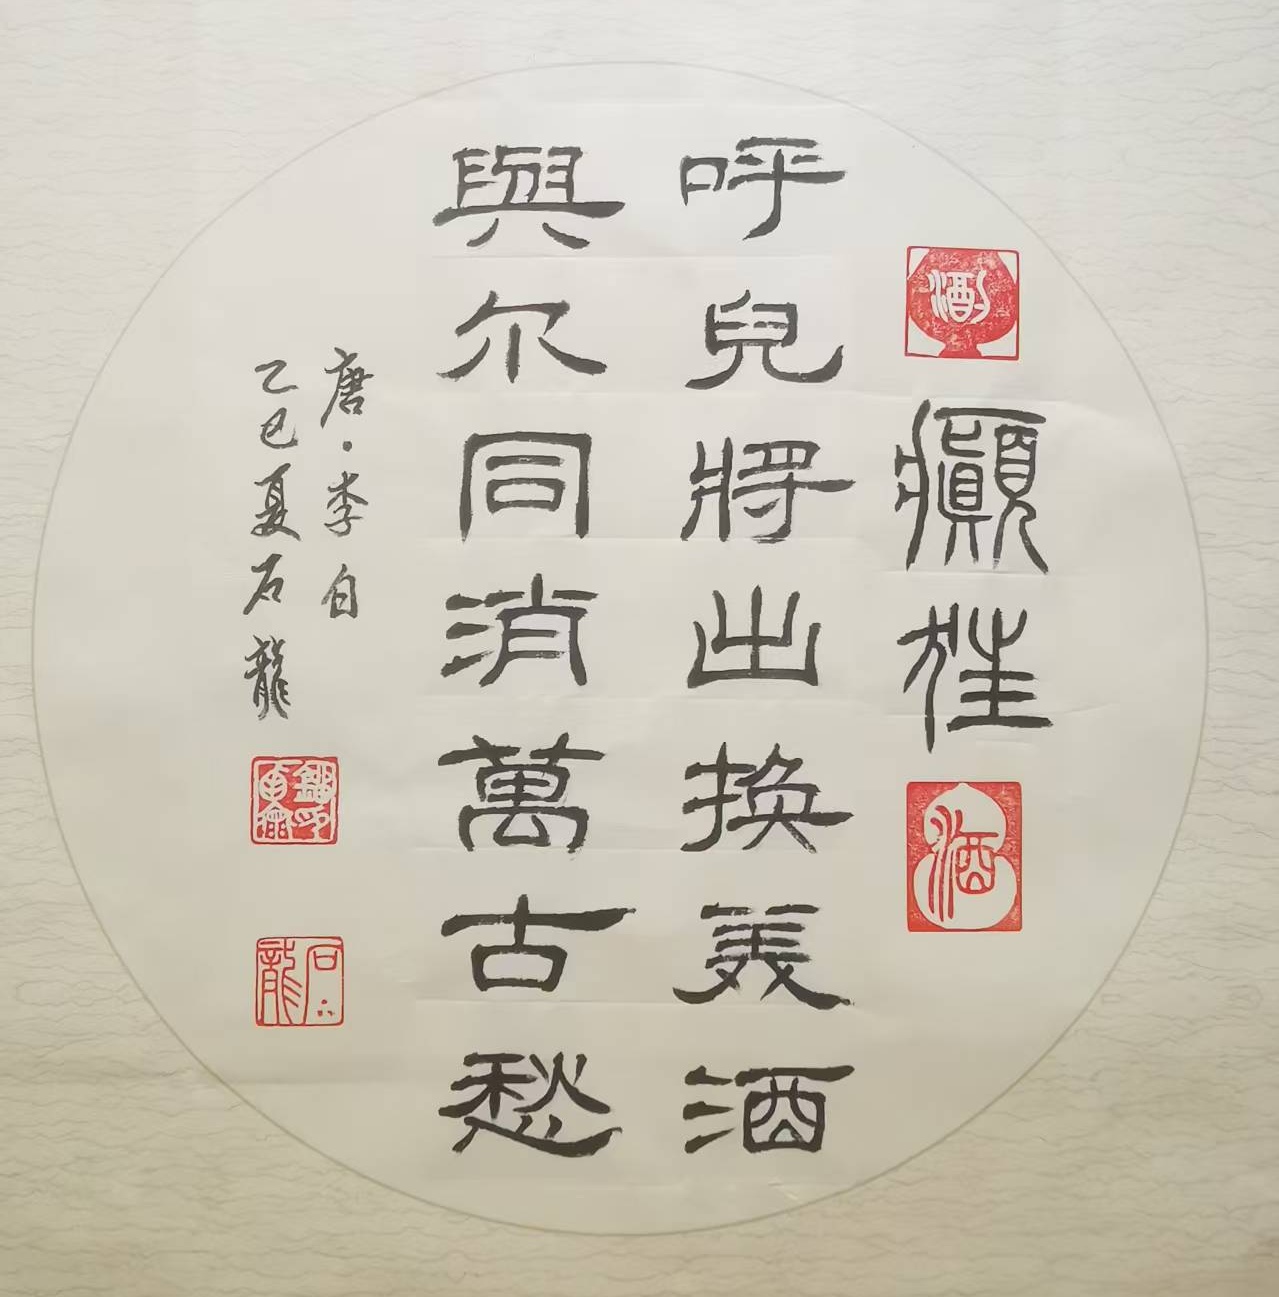 酒
癲狂
酒
呼兒將出換美酒
與尔同消萬古愁
唐·李白
乙巳夏石龍
石龍